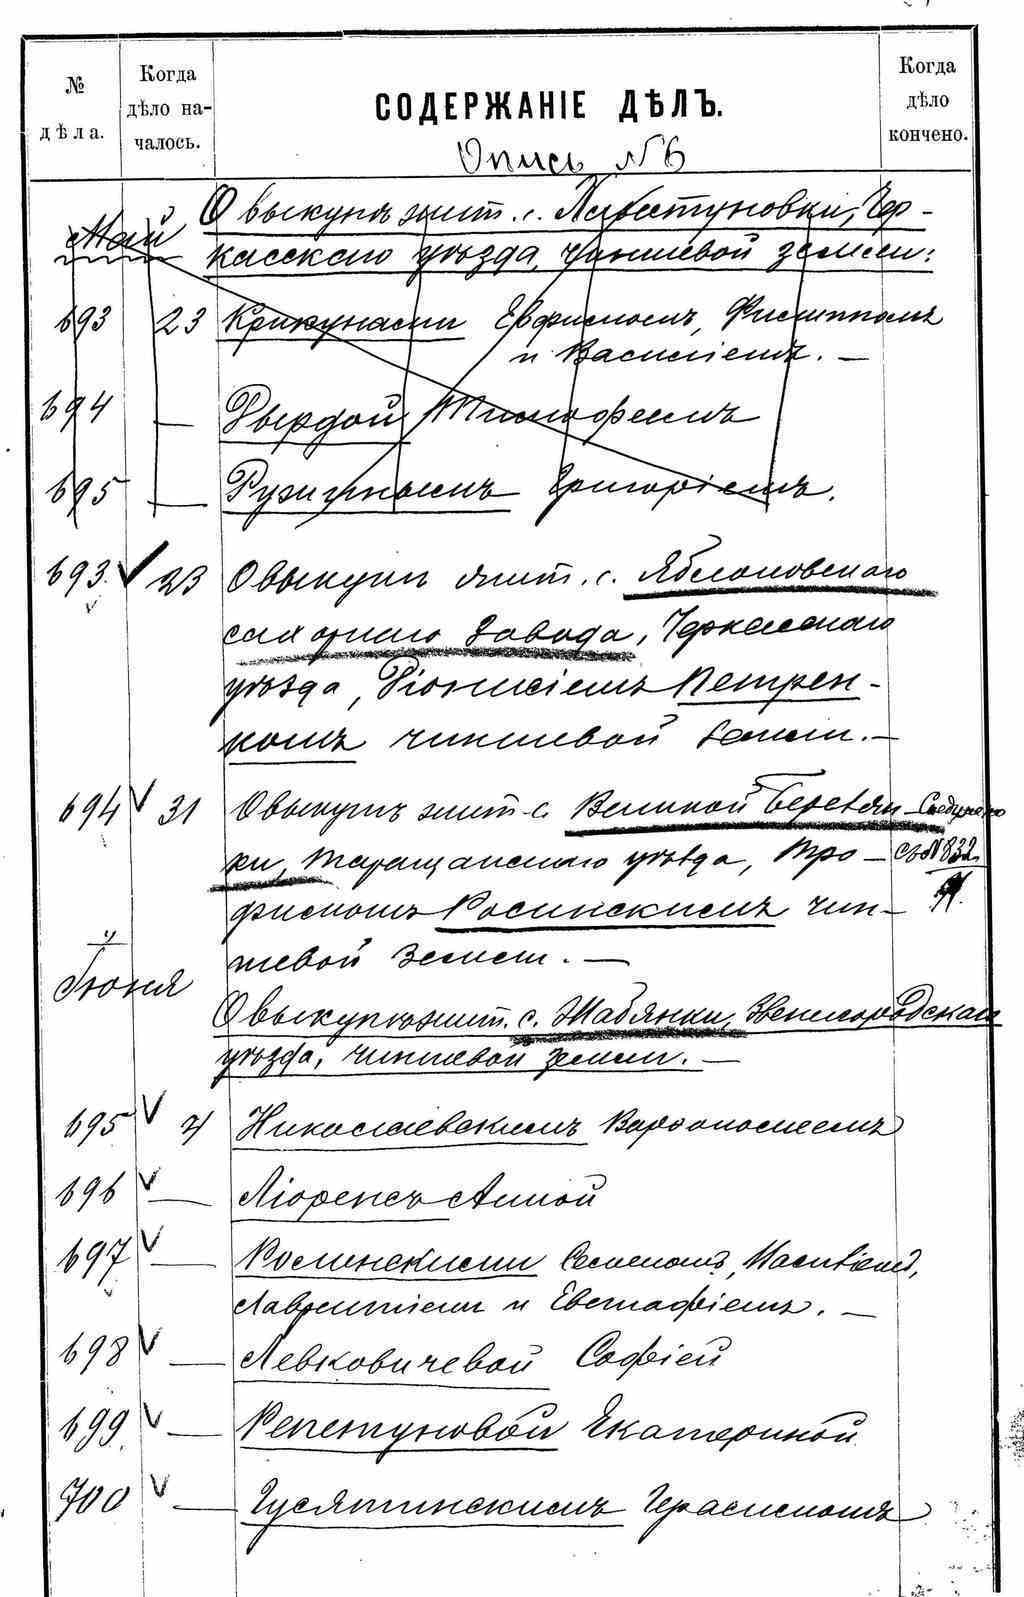 №
дѣла.
Когда
дѣло на-
чалось.
СОДЕРЖАНІЕ ДѢЛЪ.
Когда
дѣло
кончено.
Опись №6
Май
О выкупѣ жит. с. Чер-
касскаго уѣзда, чиншевой земли:
693 23 Крикунами Евфимомъ, Филиппомъ
и Василіемъ. —
694 — Твердой Тимофеемъ
695 — Ружицкимъ Григоріемъ.
693. 23 О выкупѣ жит. с. Яблоновскаго
сахарнаго завода, Черкасскаго
уѣзда, Діонисіемъ Петрен-
комъ чиншевой земли. —
694 31 О выкупѣ жит. с. Великой Березян-
ки, Таращанскаго уѣзда, Тро-
фимомъ Росинскимъ чин-
шевой земли. —
съ №832
Іюня
О выкупѣ жит. с. Жабянки, Звенигородскаго
уѣзда, чиншевой земли. —
695 4 Николаевскимъ Варфоломеемъ
696 — Ліоренсъ Анной
697 — Росинскими Семеномъ,
Лаврентіем и Евстафіемъ. —
698 — Левковичевой Софіей
699. — Репетуновой Екатериной
700 — Гусятинскимъ Герасимомъ